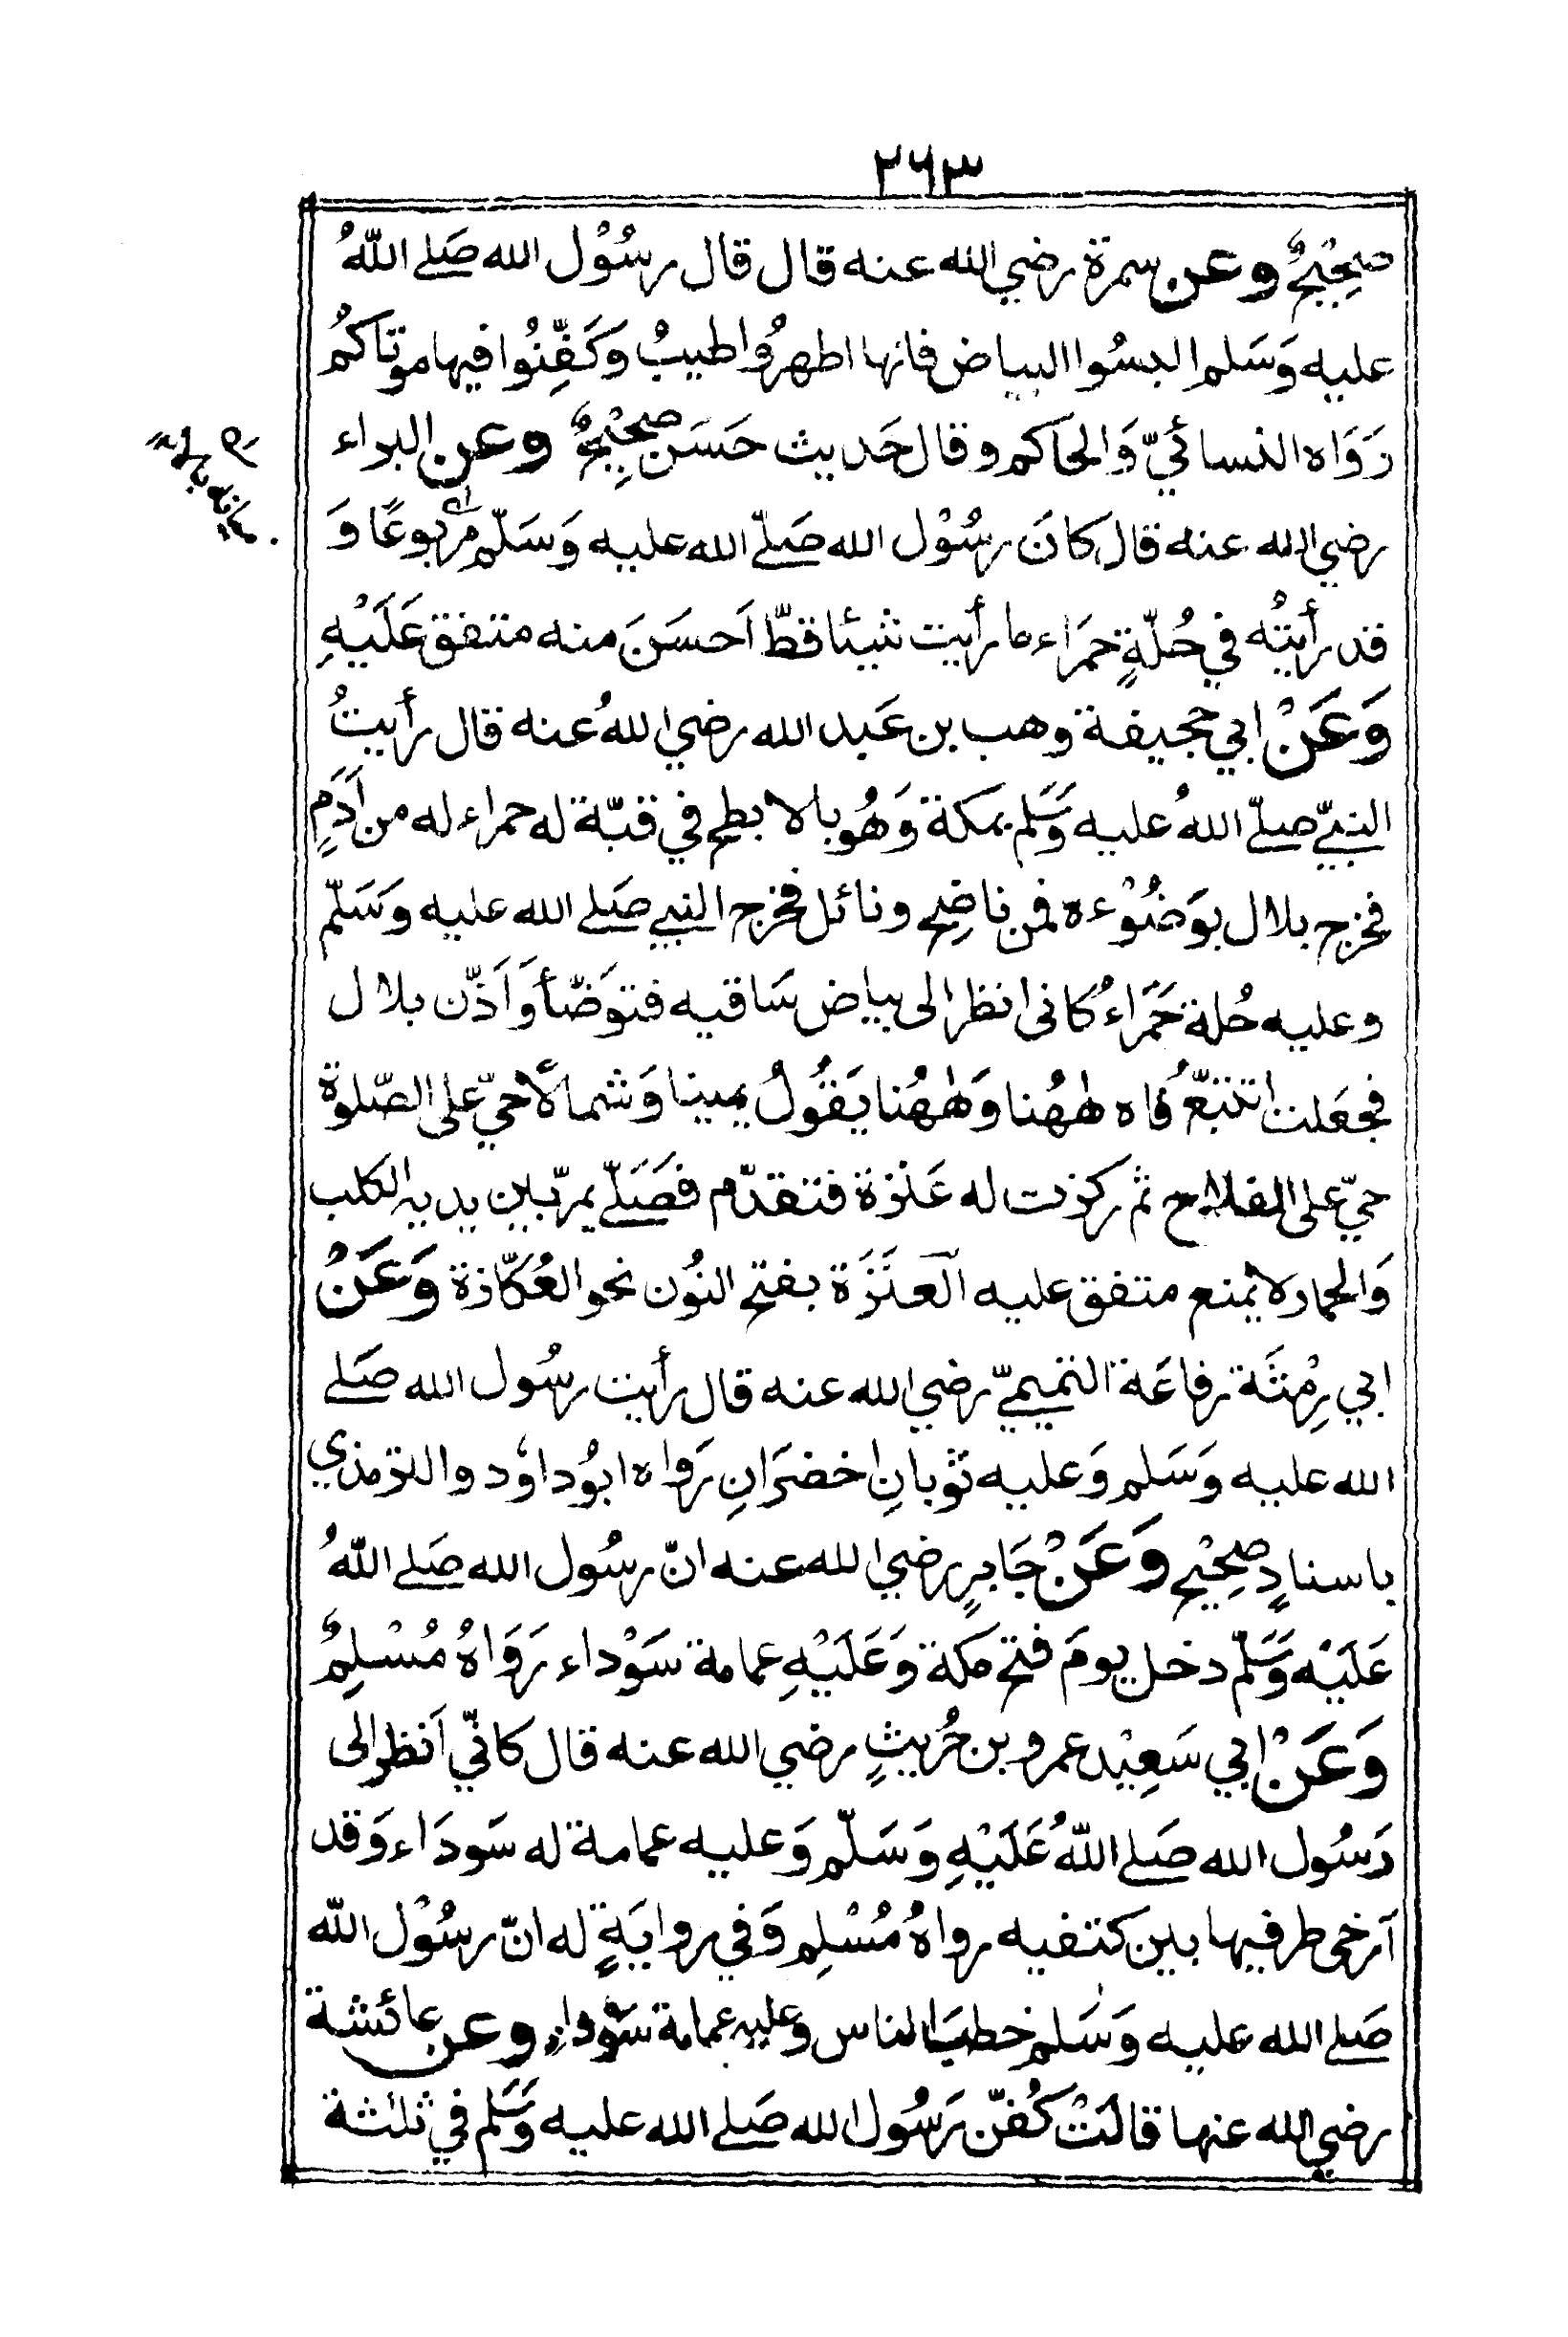 ٢٦٣
صَحِيْحٌ وعن سمرة رضي الله عنه قال قال رسُوْل الله صَلے اللّٰهُ
عليه وَسَلم البسُوا البياض فانها اطهرُ واطيبُ وَكَفِّنُوا فيها موتاكمُ
رَوَاه النسائيّ وَالحاكم وقال حَديث حَسَن صحِيْحٌ وعن البراء
رضي الله عنه قال كانَ رسُوْل الله صَلّے الله عليه وَسَلّم مربوعًا وَ
قد رأيتُه في حُلّةٍ حمرَاء ما رأيت شيئا قطّ اَحسَنَ منه متفق عَلَيْهِ
وَعَنْ ابي جحيفة وهب بن عَبد الله رضي اللهُ عنه قال رأيتُ
النبيّ صلّے اللهُ عليه وَسَلم بمكة وَهُو بالابطح في قبّة له حمراء له من اَدَمٍ
فخرج بلال بوَضُوْءه فمن ناضِح ونائل فخرج النبي صَلے الله عليه وَسَلّم
وعليه حُلة حَمْرَاءُ كانى انظر الى بياض سَاقيه فتوَضّأ وَاَذّن بلال
فجعَلت اتتبّعُ فاه هٰهُنا وَهٰهُنا يَقُولُ يمينا وَشمالاً حيّ على الصّلوة
حيّ على الفلاح ثم ركزت له عَنَزة فتقدّم فصَلّے يمرّ بين يديه الكلب
وَالحمار لا يمنع متفق عليه اَلعنَزَة بفتح النُون نحو العُكّازة وَعَنْ
ابي رِمْثَة رفاعَة التميميّ رضي الله عنه قال رأيت رسُول الله صَلے
الله عليه وَسَلم وَعليه ثوبانِ اخضرَانِ رَواه ابُو داوٗد والترمذي
باسنادٍ صحِيْح وَعَنْ جَابرٍ رضي الله عنه انّ رسُول الله صَلے اللّٰهُ
عَلَيْه وَسَلّم دخل يومَ فتح مكة وَعَلَيْهِ عمامة سَوْداء رَوَاهُ مُسْلِمٌ
وَعَنْ ابي سَعِيْد عمرو بن حُريثٍ رضي الله عنه قال كانّي اَنظر الى
رَسُول الله صَلے اللّٰهُ عَلَيْهِ وَسَلّم وَعليه عمامة له سَودَاء وَقد
اَرخى طرفيها بين كتفيه رواهُ مُسْلِم وَفي روايَةٍ له انّ رسُوْل اللّٰه
صَلے الله عليه وَسَلم خطبَ الناس وعليه عمامة سَوْداء وعن عائشة
رضي الله عنها قالتْ كُفّن رَسُول الله صَلے الله عليه وَسَلم في ثلٰثة